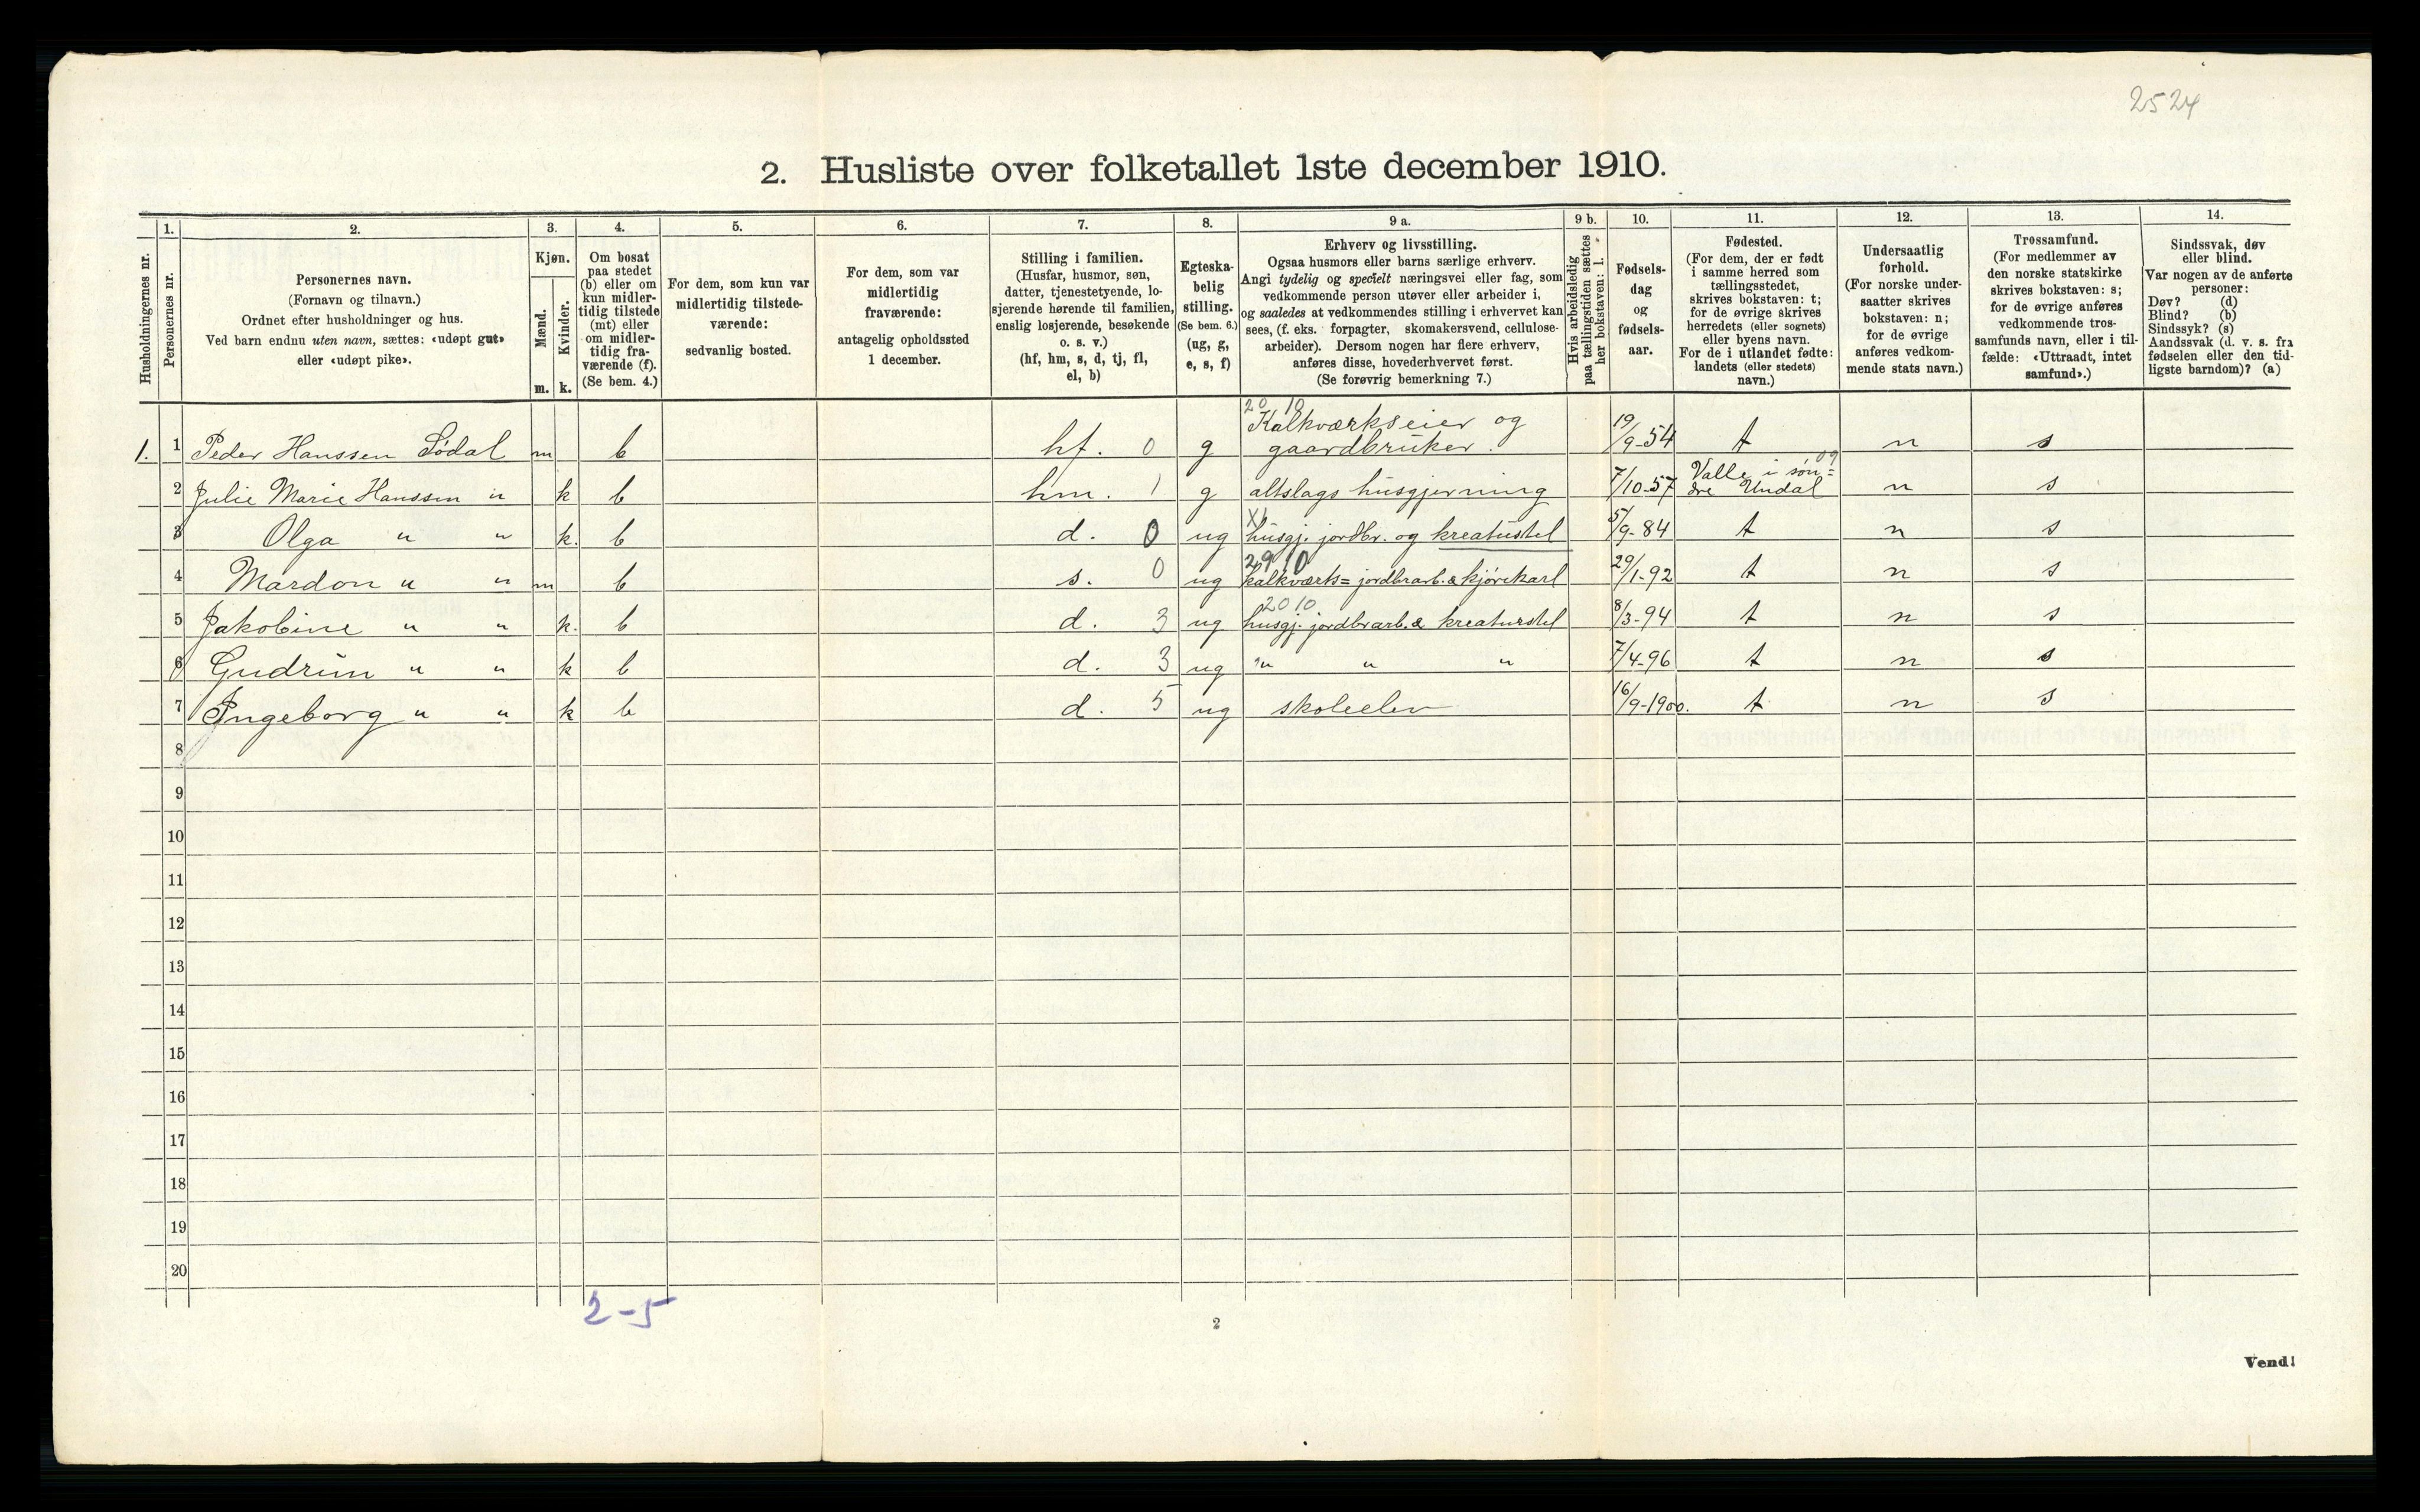 2524
2. Husliste over folketallet 1ste december 1910.
Husholdningernes nr.
1.
Personernes nr.
2.
Personernes navn.
(Fornavn og tilnavn.)
Ordnet efter husholdninger og hus.
Ved barn endnu uten navn, sættes: «udøpt gut»
eller «udøpt pike».
3.
Kjøn.
Mænd.
Kvinder.
m. k.
4.
Om bosat
paa stedet
(b) eller om
kun midler-
tidig tilstede
(mt) eller
om midler-
tidig fra-
værende (f).
(Se bem. 4.)
5.
For dem, som kun var
midlertidig tilstede-
værende:
sedvanlig bosted.
6.
For dem, som var
midlertidig
fraværende:
antagelig opholdssted
1 december.
7.
Stilling i familien.
(Husfar, husmor, søn,
datter, tjenestetyende, lo-
sjerende hørende til familien,
enslig losjerende, besøkende
o. s. v.)
(hf, hm, s, d, tj, fl,
el, b)
8.
Egteska-
belig
stilling.
(Se bem. 6.)
(ug, g,
e, s, f)
9 a.
Erhverv og livsstilling.
Ogsaa husmors eller barns særlige erhverv.
Angi tydelig og specielt næringsvei eller fag, som
vedkommende person utøver eller arbeider i,
og saaledes at vedkommendes stilling i erhvervet kan
sees, (f. eks. forpagter, skomakersvend, cellulose-
arbeider). Dersom nogen har flere erhverv,
anføres disse, hovederhvervet først.
(Se forøvrig bemerkning 7.)
9 b.
Hvis arbeidsledig
paa tællingstiden sættes
her bokstaven: l.
10.
Fødsels-
dag
og
fødsels-
aar.
11.
Fødested.
(For dem, der er født
i samme herred som
tællingsstedet,
skrives bokstaven: t;
for de øvrige skrives
herredets (eller sognets)
eller byens navn.
For de i utlandet fødte:
landets (eller stedets)
navn.)
12.
Undersaatlig
forhold.
(For norske under-
saatter skrives
bokstaven: n;
for de øvrige
anføres vedkom-
mende stats navn.)
13.
Trossamfund.
(For medlemmer av
den norske statskirke
skrives bokstaven: s;
for de øvrige anføres
vedkommende tros-
samfunds navn, eller i til-
fælde: «Uttraadt, intet
samfund».)
14.
Sindssvak, døv
eller blind.
Var nogen av de anførte
personer:
Døv? (d)
Blind? (b)
Sindssyk? (s)
Aandssvak (d. v. s. fra
fødselen eller den tid-
ligste barndom)? (a)
20 10
Kalkværkseier og
1. 1 Peder Hanssen Sødal m b hf. 0 g gaardbruker. 19/9-54 t n s
09
Valle i søn=
2 Julie Marie Hanssen " k b hm. 1 g altslags husgjerning 7/10-57 dre Undal n s
X6
3 Olga " " k. b d. 0 ug husgj. jordbr. og kreaturstel 5/9-84 t n s
29 10
4 Mardon " " m b s. 0 ug kalkværks= jordbrarb. & kjørekarl 29/1-92 t n s
20 10
5 Jakobine " " k. b d. 3 ug husgj. jordbrarb. & kreaturstel 8/3-94 t n s
6 Gudrun " " k b d. 3 ug " " " 7/4-96 t n s
7 Ingeborg " " k b d. 5 ug skoleelev 16/9-1900. t n s
8
9
10
11
12
13
14
15
16
17
18
19
20
2-5
2
Vend!